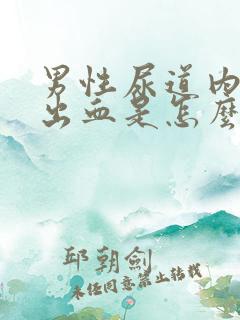 男性尿道内
出血是怎麼
邱朝劍
未经同意禁止转载